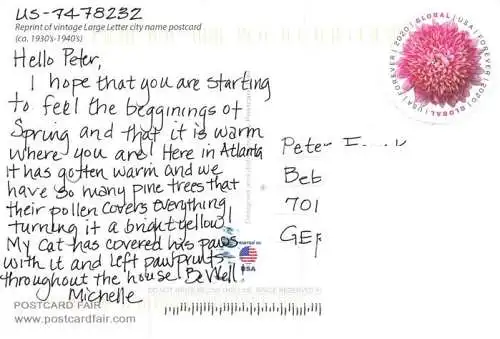 US-7478232
Reprint of vintage Large Letter city name postcard
(ca. 1930's-1940's)
Hello Peter,
I hope that you are starting
to feel the begginings of
Spring and that it is warm
where you are! Here in Atlanta
it has gotten warm and we
have so many pine trees that
their pollen covers everything
turning it a bright yellow!
My cat has covered his paws
with it and left pawprints
throughout the house. Be Well,
Michelle
POSTCARD FAIR
www.postcardfair.com
FOREVER | 2020 | GLOBAL | USA | FOREVER | 2020 | GLOBAL | USA
Peter
Beb
701
GER
Printed in
USA
DO NOT WRITE BELOW THIS LINE